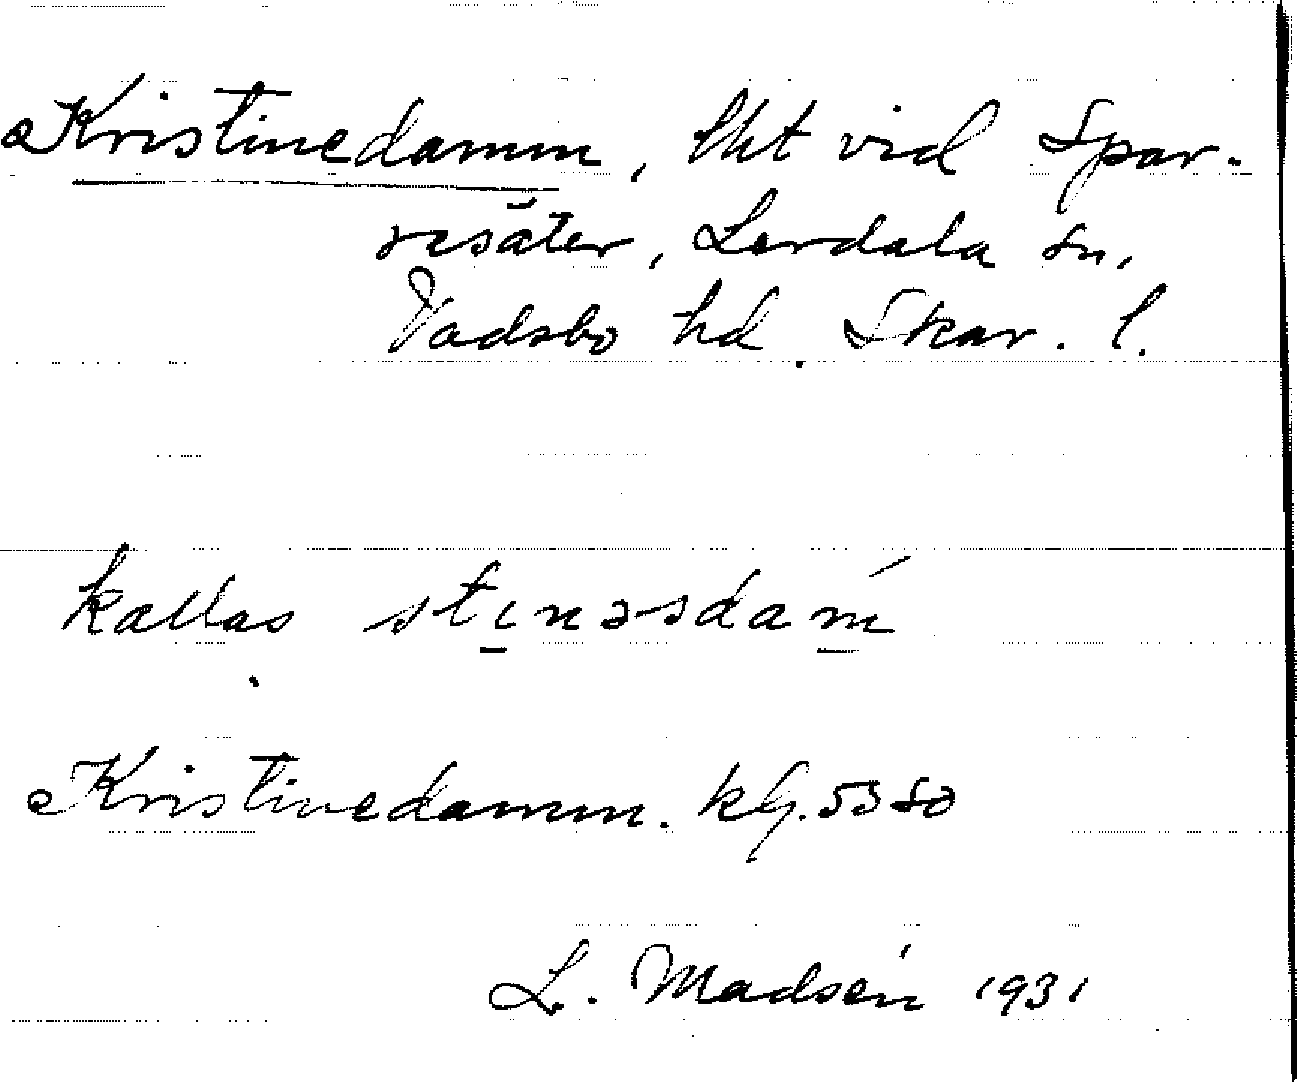 Kristinedamm, lht vid Spar-
resäter, Lerdala sn,
Vadsbo hd. Skar. l.
kallas stınəsdaḿ
Kristinedamm. kG. 53 so
L. Madsén 1931